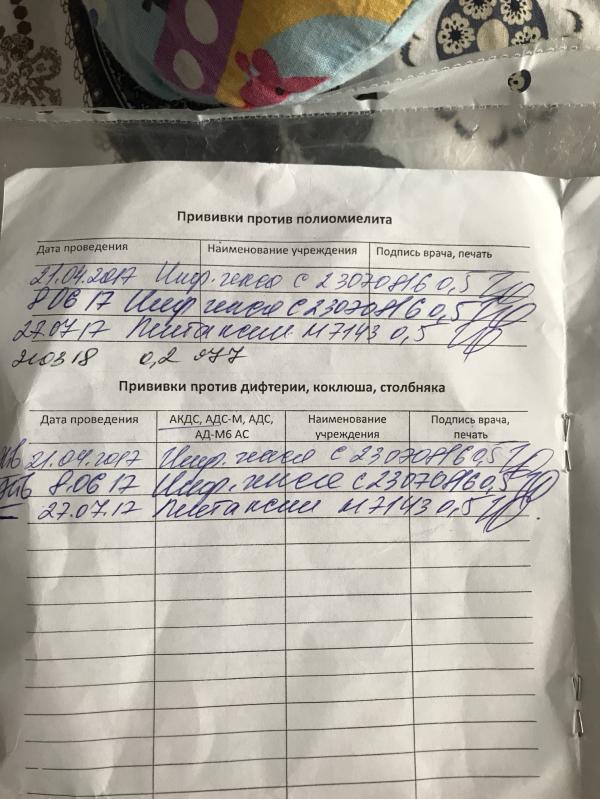 Прививки против полиомиелита
Дата проведения Наименование учреждения Подпись врача, печать
21.04.2017 Инф. гекса С 23070816 0,5
8.06 17 Инф. гекса С 23070816 0,5
27.07 17 Пентаксим М7143 0,5
21 03 18 0,2
Прививки против дифтерии, коклюша, столбняка
Дата проведения АКДС, АДС-М, АДС, АД-М6 АС Наименование учреждения Подпись врача, печать
21.04.2017 Инфр. гекса С 23070816 0,5
8.06 17 Инфр. гекса С 23070816 0,5
27.07.17 Пентаксим М7143 0,5